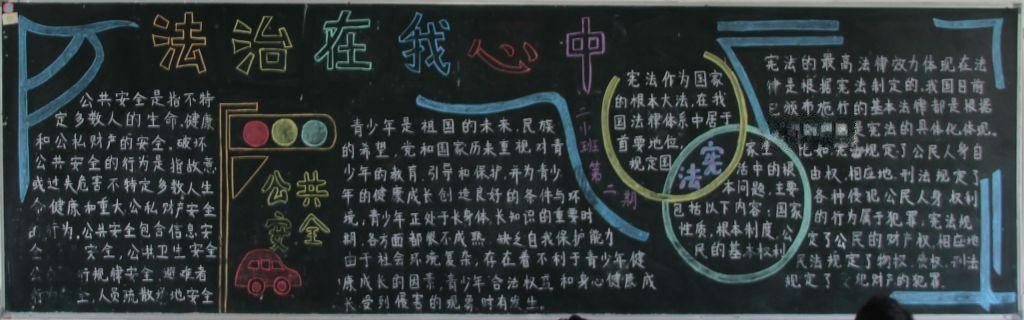 法治在我心中
公共安全是指不特
定多数人的生命、健康
和公私财产的安全。破坏
公共安全的行为是指故意
或过失危害不特定多数人生
命健康和重大公私财产安全
的行为。公共安全包含信息安
安全,公共卫生安全
行规律安全 避难者
人员流散 地安全
公共
安全
青少年是祖国的未来,民族
的希望,党和国家历来重视对青
少年的教育,引导和保护,并为青少
年的健康成长创造良好的条件与环
境,青少年正处于长身体、长知识的重要时
期,各方面都很不成熟,缺乏自我保护能力
由于社会环境复杂,存在着不利于青少年健
康成长的因素,青少年合法权益和身心健康成
长受到侵害的现象时有发生。
二小班第二期
宪法作为国家
的根本大法,在我
国法律体系中居于
重要地位,
规定国
宪法
家生
活中的主要
本问题,根
包括以下内容:国家
性质,根本制度,公
民的基本权利
宪法的最高法律效力体现在法
律是根据宪法制定的,我国目前
已颁布施行的基本法律都是根据
是宪法的具体化,体现。
化和宪法规定了公民人身自
由权,相应地,刑法规定了
各种侵犯公民人身权利
的行为属于犯罪,宪法规
定了公民的财产权,相应地
民法规定了物权,债权,刑法
规定了 犯财产的犯罪